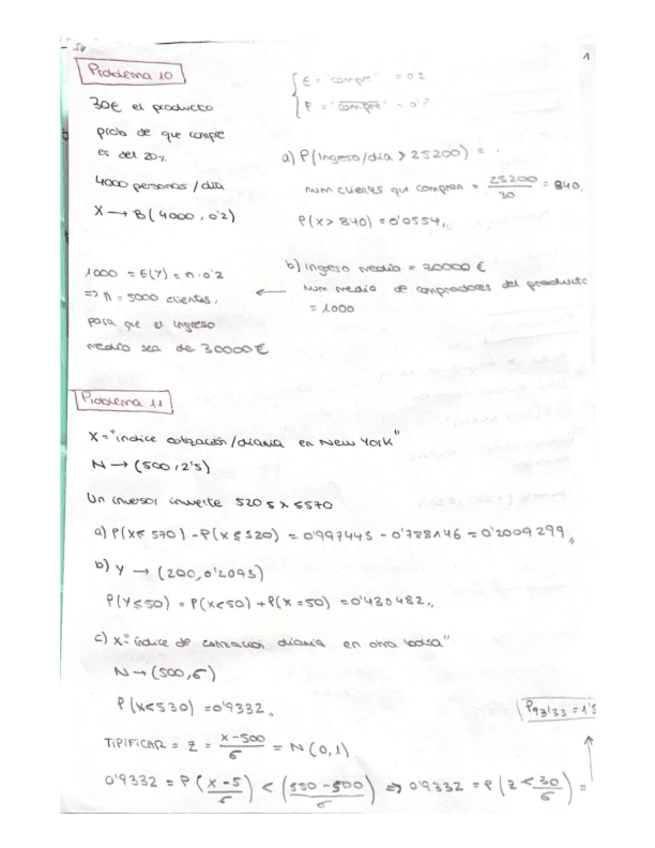 1
Problema 10
30€ el producto
prob de que compre
es del 20%
4000 personas / día
X → B(4000, 0'2)
E = "compre" = 0'2
F = "compre" = 0'8
a) P(Ingreso/día > 25200) =
num clientes que compran = 25200/30 = 840.
P(X > 840) = 0'0554,,
b) Ingreso medio = 30000 €
Num medio de compradores del producto
= 1000
1000 = E(Y) = n·0'2
=> n = 5000 clientes.
para que el ingreso
medio sea de 30000€
Problema 11
X = "indice cotización/diaria en New York"
N → (500, 25)
Un inversor invierte 520 ≤ x ≤ 570
a) P(X ≤ 570) - P(X ≤ 520) = 0'997445 - 0'788146 = 0'2009299,,
b) Y → (200, 0'2093)
P(Y ≤ 50) = P(X < 50) + P(X = 50) = 0'430482,,
c) X = "índice de cotización diaria en otra bolsa"
N → (500, σ)
P(X < 530) = 0'9332,
P93'33 = 1'5
TIPIFICAR = Z = x-500/σ = N(0,1)
0'9332 = P(x-5/σ) < (530-500/σ) => 0'9332 = P(Z < 30/σ) =